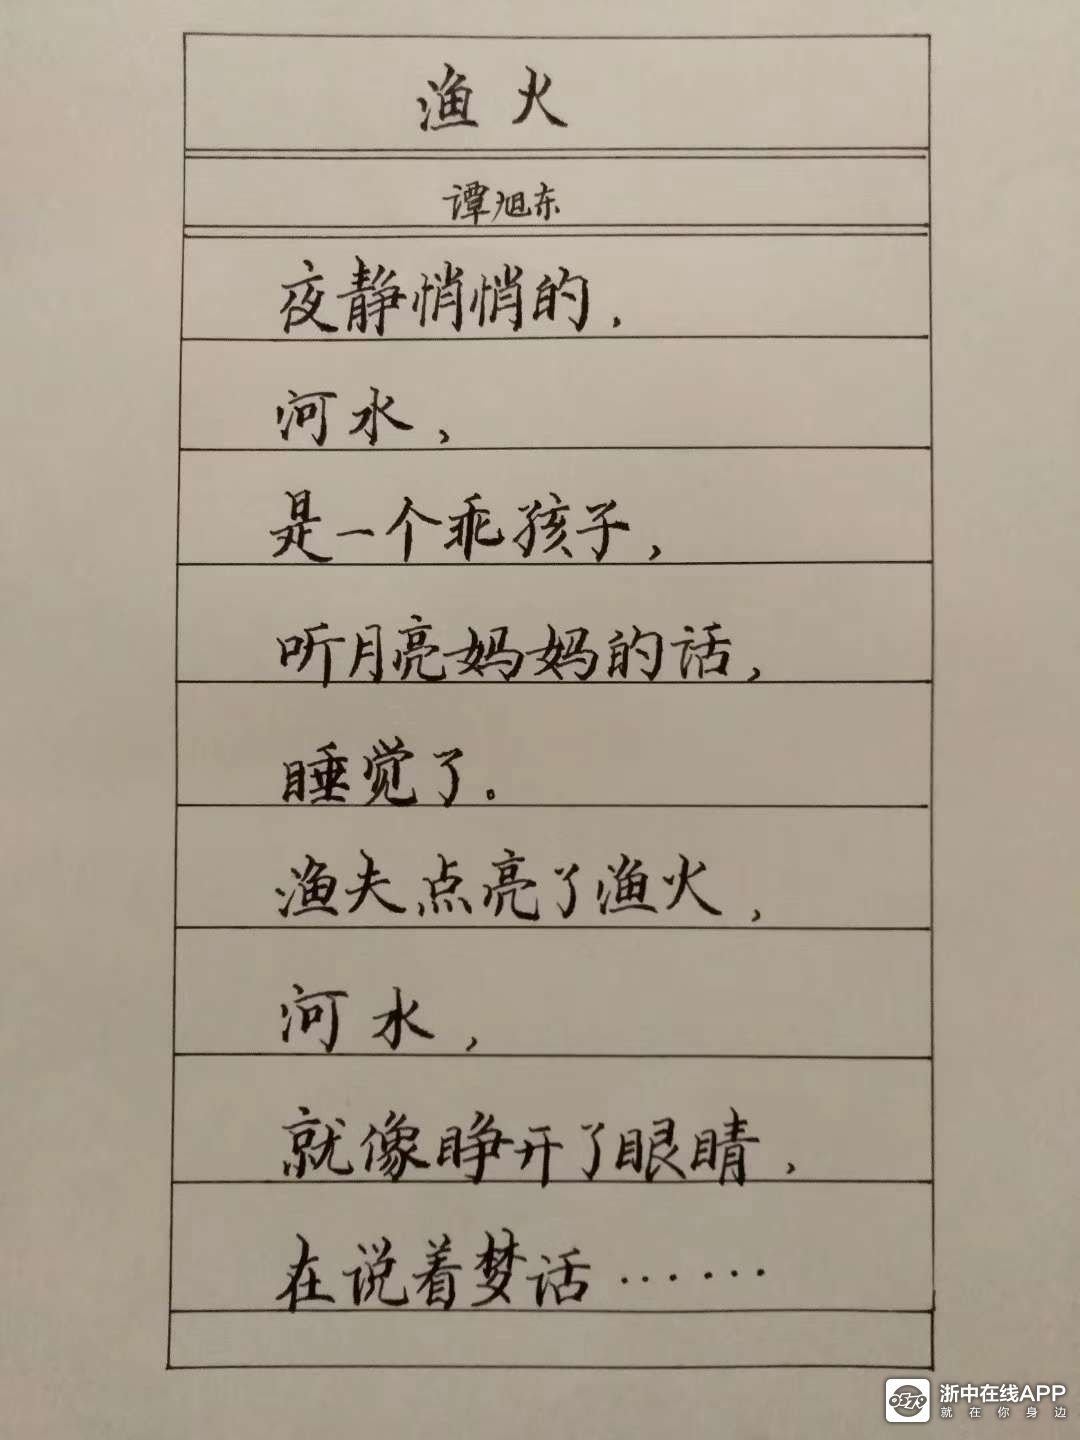 渔火
谭旭东
夜静悄悄的，
河水，
是一个乖孩子，
听月亮妈妈的话，
睡觉了。
渔夫点亮了渔火，
河水，
就像睁开了眼睛，
在说着梦话……
浙中在线APP
就在你身边